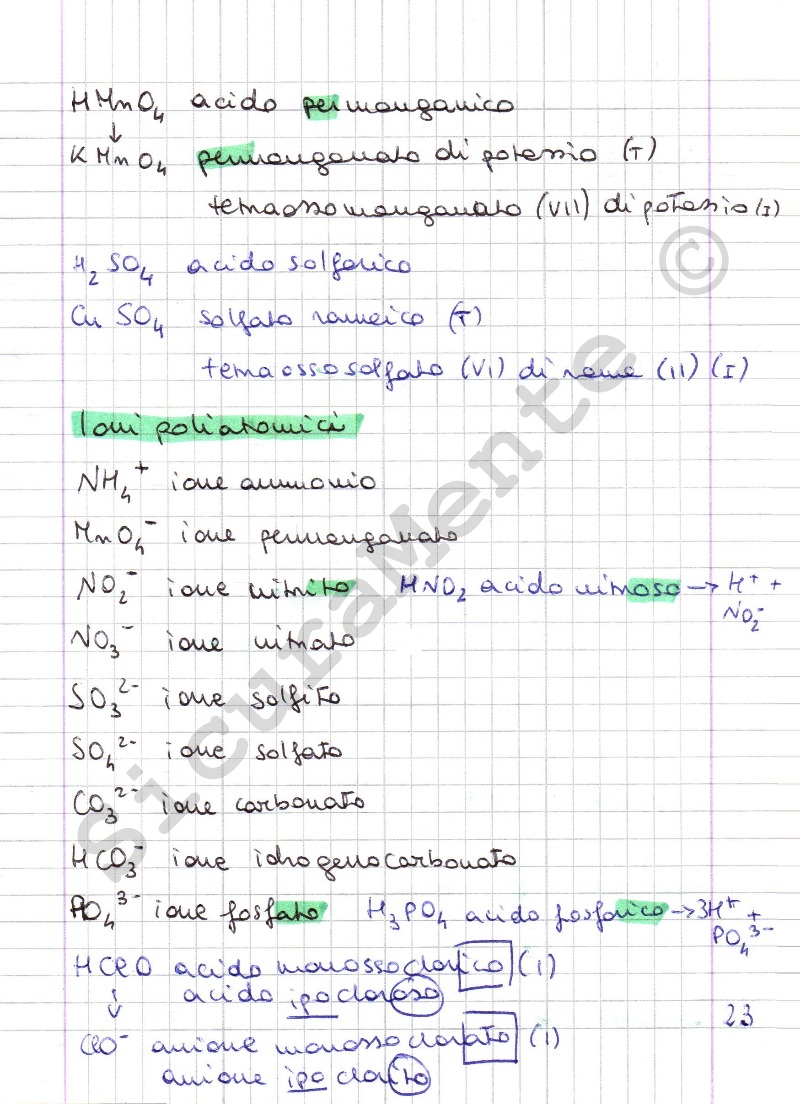 HMnO₄ acido permanganico
↓
KMnO₄ permanganato di potassio (T)
tetraossomanganato (VII) di potassio (I)
H₂SO₄ acido solforico
CuSO₄ solfato rameico (T)
tetraossosolfato (VI) di rame (II) (I)
Ioni poliatomici
NH₄⁺ ione ammonio
MnO₄⁻ ione permanganato
NO₂⁻ ione nitrito HNO₂ acido nitroso → H⁺ +
NO₂⁻
NO₃⁻ ione nitrato
SO₃²⁻ ione solfito
SO₄²⁻ ione solfato
CO₃²⁻ ione carbonato
HCO₃⁻ ione idrogenocarbonato
PO₄³⁻ ione fosfato H₃PO₄ acido fosforico → 3H⁺ +
PO₄³⁻
HClO acido monossoclorico (I)
↓ acido ipocloroso
ClO⁻ anione monossoclorato (I)
anione ipoclorito
23
SicuraMente ©